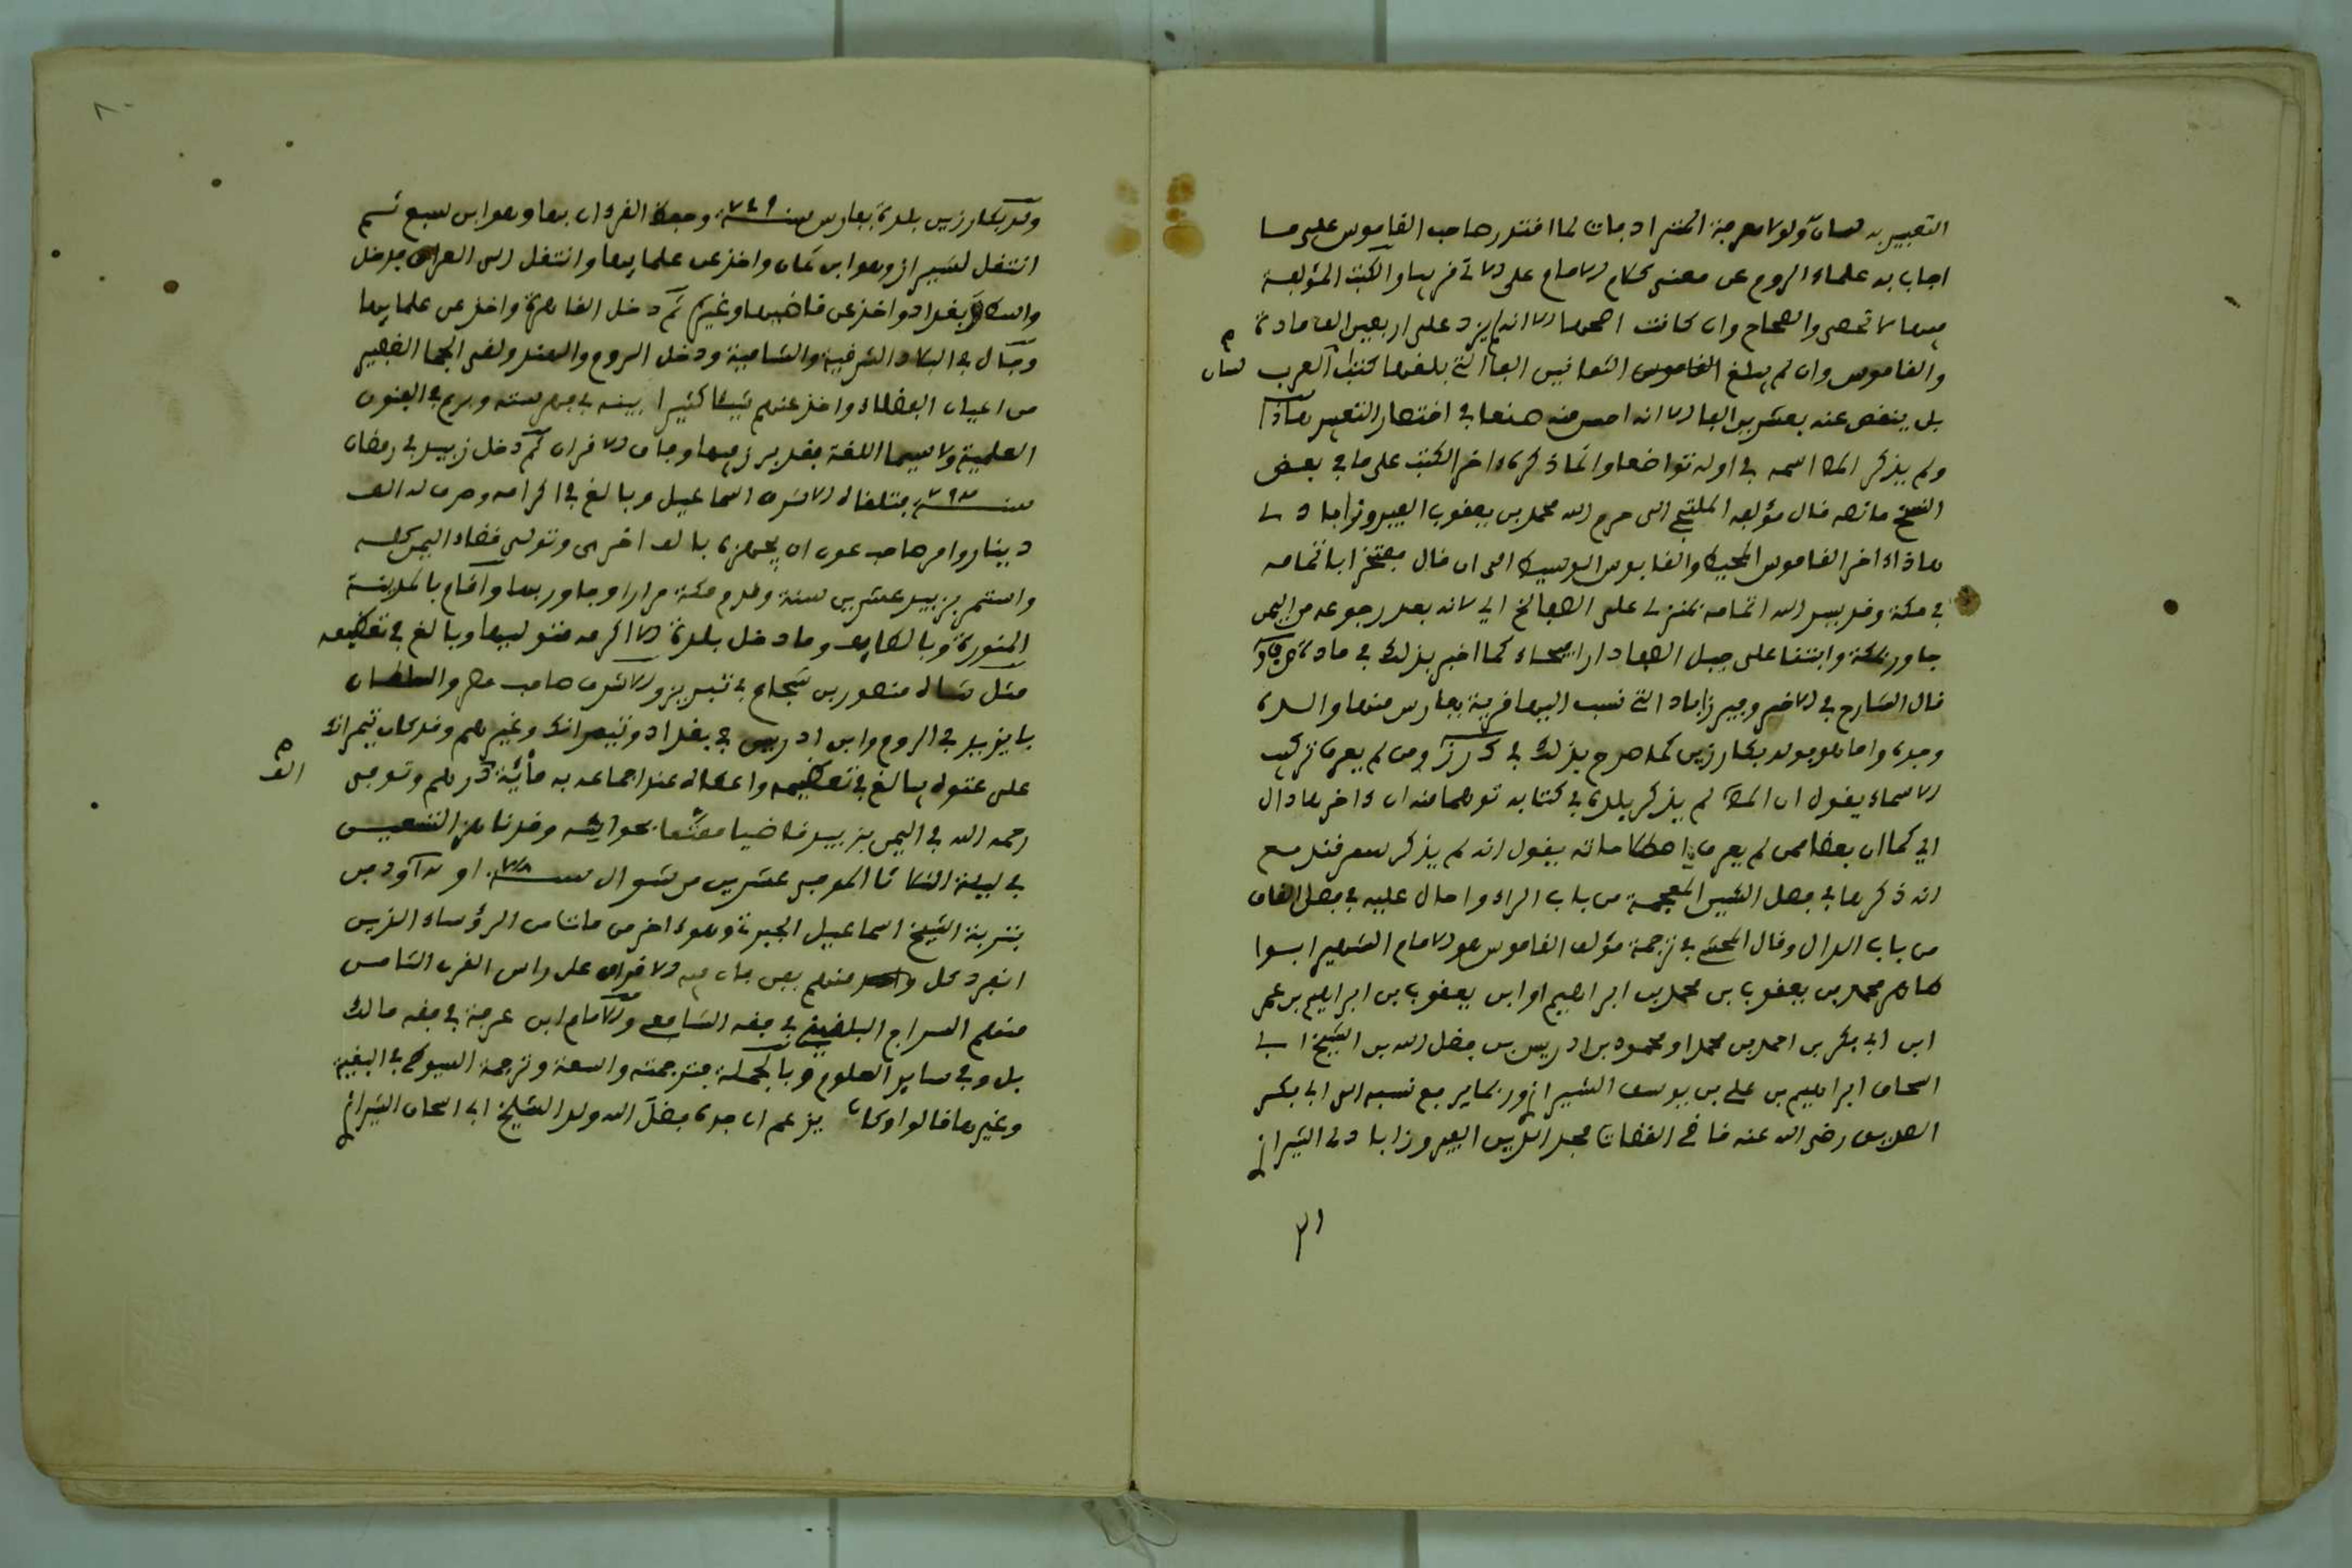 التعبير به لسان ولولا معرفة المترادفات لما اقتدر صاحب القاموس على ما
اجاب به علماء الروم عن معنى كلام الامام علي الاتي قريبا والكتب المؤلفة
فيها لا تحصى والصحاح وان كانت اصحها الا انه لم يزد على اربعين الف مادة
والقاموس وان لم يبلغ القاموس الثمانين الفا التي بلغها كتب العرب
لسان
بل ينقص عنه بعشرين الفا الا انه احسن منه صنعا في اختصار التعبير هذا
ولم يذكر المص اسمه في اوله تواضعا وانما ذكره ءاخر الكتب على ما في بعض
النسخ ما نصه قال مؤلفه الملتجئ الى حرم الله محمد بن يعقوب الفيروزابادي
هذا ءاخر القاموس المحيط والقابوس الوسيط الى ان قال مفتخرا باتمامه
في مكة وقد يسر الله اتمامه بمنزلي على الصفا الخ اي لانه بعد رجوعه من اليمن
جاور بمكة وابتنا على جبل الصفا دارا فيحاء كما اخبر بذلك في مادة
قال الشارح في الاخير وفيروزاباد التي نسب اليها قرية بفارس منها والده
وجده واما هو فولد بكارزين كما صرح بذلك في ك رز ومن لم يعرف تركيب
الاسماء يقول ان المص لم يذكر بلده في كتابه توهما منه ان ءاخرها دال
اي كما ان بعضا ممن لم يعرف اصطلاحاته يقول انه لم يذكر سمرقند مع
انه ذكرها في فصل الشين المعجمة من باب الراء واحال عليه في فصل القاف
من باب الدال وقال المحشي في ترجمة مؤلف القاموس هو الامام الشهير ابوا
طاهر محمد بن يعقوب بن محمد بن ابراهيم او ابن يعقوب بن ابراهيم بن عمر
ابن ابي بكر بن احمد بن محمد او محمود بن ادريس بن فضل الله بن الشيخ ابي
اسحاق ابراهيم بن علي بن يوسف الشيرازي وربما يرفع نسبه الى ابي بكر
الصديق رضي الله عنه قاضي القضات مجد الدين الفيروزابادي الشيرازي
٨٠
ولد بكارزين بلدة بفارس سنة ٧٤٩ وحفظ القرءان بها وهو ابن سبع ثم
انتقل لشيراز وهو ابن ثمان واخذ عن علمايها وانتقل الى العراق فدخل
واسط وبغداد واخذ عن قاضيها وغيره ثم دخل القاهرة واخذ عن علمايها
وجال في البلاد الشرقية والشامية ودخل الروم والهند ولقى الجما الغفير
من اعيان الفضلاء واخذ عنهم شيئا كثيرا بينه في فهرسته وبرع في الفنون
العلمية ولا سيما اللغة فقد برز فيها وفاق الاقران ثم دخل زبيد في رمضان
سنة ٧٩٦ فتلقاه الاشرف اسماعيل وبالغ في اكرامه وصرف له الف
دينار وامر صاحب عدن ان يجهزه بالف اخرى وتولى قضاء اليمن كله
واستمر بزبيد عشرين سنة وقدم مكة مرارا وجاور بها واقام بالمدينة
المنورة وبالطايف وما دخل بلدة الا اكرمه متوليها وبالغ في تعظيمه
مثل شاه منصور بن شجاع في تبريز والاشرف صاحب مصر والسلطان
بايزيد في الروم وابن ادريس في بغداد وتيمرلنك وغيرهم وقد كان تيمرلنك
على عتوه يبالغ في تعظيمه واعطاه عند اجتماعه به مائة درهم وتوفى
الف
رحمه الله في اليمن بزبيد قاضيا ممتعا بحواسه وقد ناهز التسعين
في ليلة الثلاثا الموفى عشرين من شوال سنة ٨١٧ او ودفن
بتربة الشيخ اسماعيل الجبرتي وهو ءاخر من مات من الرؤساء الذين
انفرد كل واحد منهم بفن فاق فيه الاقران على راس القرن الثامن
منهم السراج البلقيني في فقه الشافعي والامام ابن عرفة في فقه مالك
بل وفي ساير العلوم وبالجملة فترجمته واسعة وترجمه السيوطي في البغية
وغيرها قالوا وكان يزعم ان جده فضل الله ولد الشيخ ابي اسحاق الشيرازي